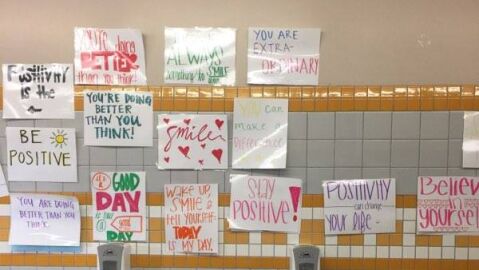 You're doing
BETTER
than you think!
ALWAYS
something to SMILE
YOU ARE
EXTRA-
ORDINARY
POSITIVITY
is the
YOU'RE DOING
BETTER
THAN YOU
THINK!
Smile
YOU can
make a
Difference
BE
POSITIVE
YOU ARE DOING
BETTER THAN YOU
THINK
GOOD
DAY
GOOD
DAY
WAKE UP,
SMILE &
TELL YOURSELF
TODAY
IS MY DAY.
STAY
POSITIVE!
POSITIVITY
can change
your life
Believe
in
yourself